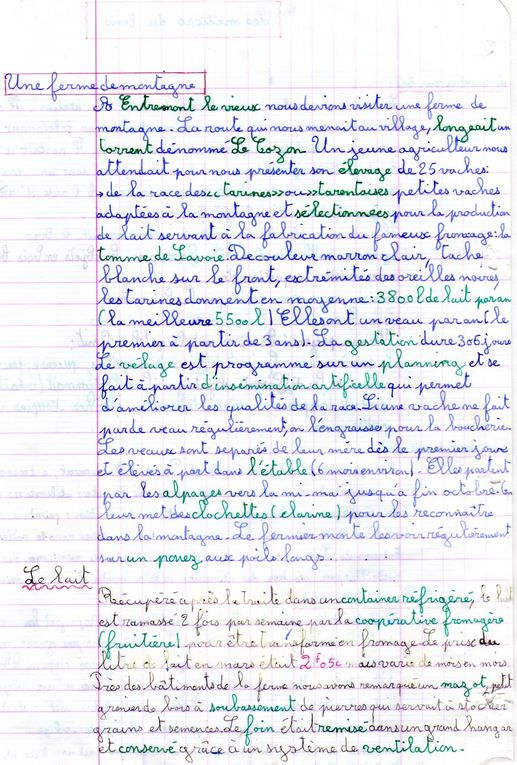 Une ferme de montagne
A Entremont le vieux nous devions visiter une ferme de
montagne. La route qui nous menait au village, longeait un
torrent dénommé Le Cozon. Un jeune agriculteur nous
attendait pour nous présenter son élevage de 25 vaches:
→ de la race des <<tarines>> ou >>tarentaises petites vaches
adaptées à la montagne et sélectionnées pour la production
de lait servant à la fabrication du fameux fromage: la
tomme de Savoie. De couleur marron clair, tache
blanche sur le front, extrémités des oreilles noires,
les tarines donnent en moyenne: 3800 l de lait par an
(la meilleure 5500 l) Elles ont un veau par an (le
premier à partir de 3 ans). La gestation dure 306 jours
Le vélage est programmé sur un planning, et se
fait à partir d'insémination artificelle qui permet
d'améliorer les qualités de la race. Si une vache ne fait
pas de veau régulièrement, on l'engraisse pour la boucherie.
Les veaux sont separés de leur mère dès le premier jours
et élevés à part dans l'étable (6 mois environ). Elles partent
par les alpages vers la mi-mai jusqu'à fin octobre. On
leur met des clochettes (clarine) pour les reconnaître
dans la montagne. Le fermier monte les voir régulièrement
sur un poney aux poils longs.
Le lait
Récupéré après la traite dans un container réfrigéré, le lait
est ramassé 2 fois par semaine par la coopérative fromagère
(fruitière) pour être transformé en fromage. Le prix du
litre de lait en mars était 2F05c mais varie de mois en mois
Près des bâtiments de la ferme nous avons remarqué un mazot, petit
grenier de bois à soubassement de pierres qui servait à stocker
grains et semences. Le foin était remisé dans un grand hangar
et conservé grâce à un système de ventilation.